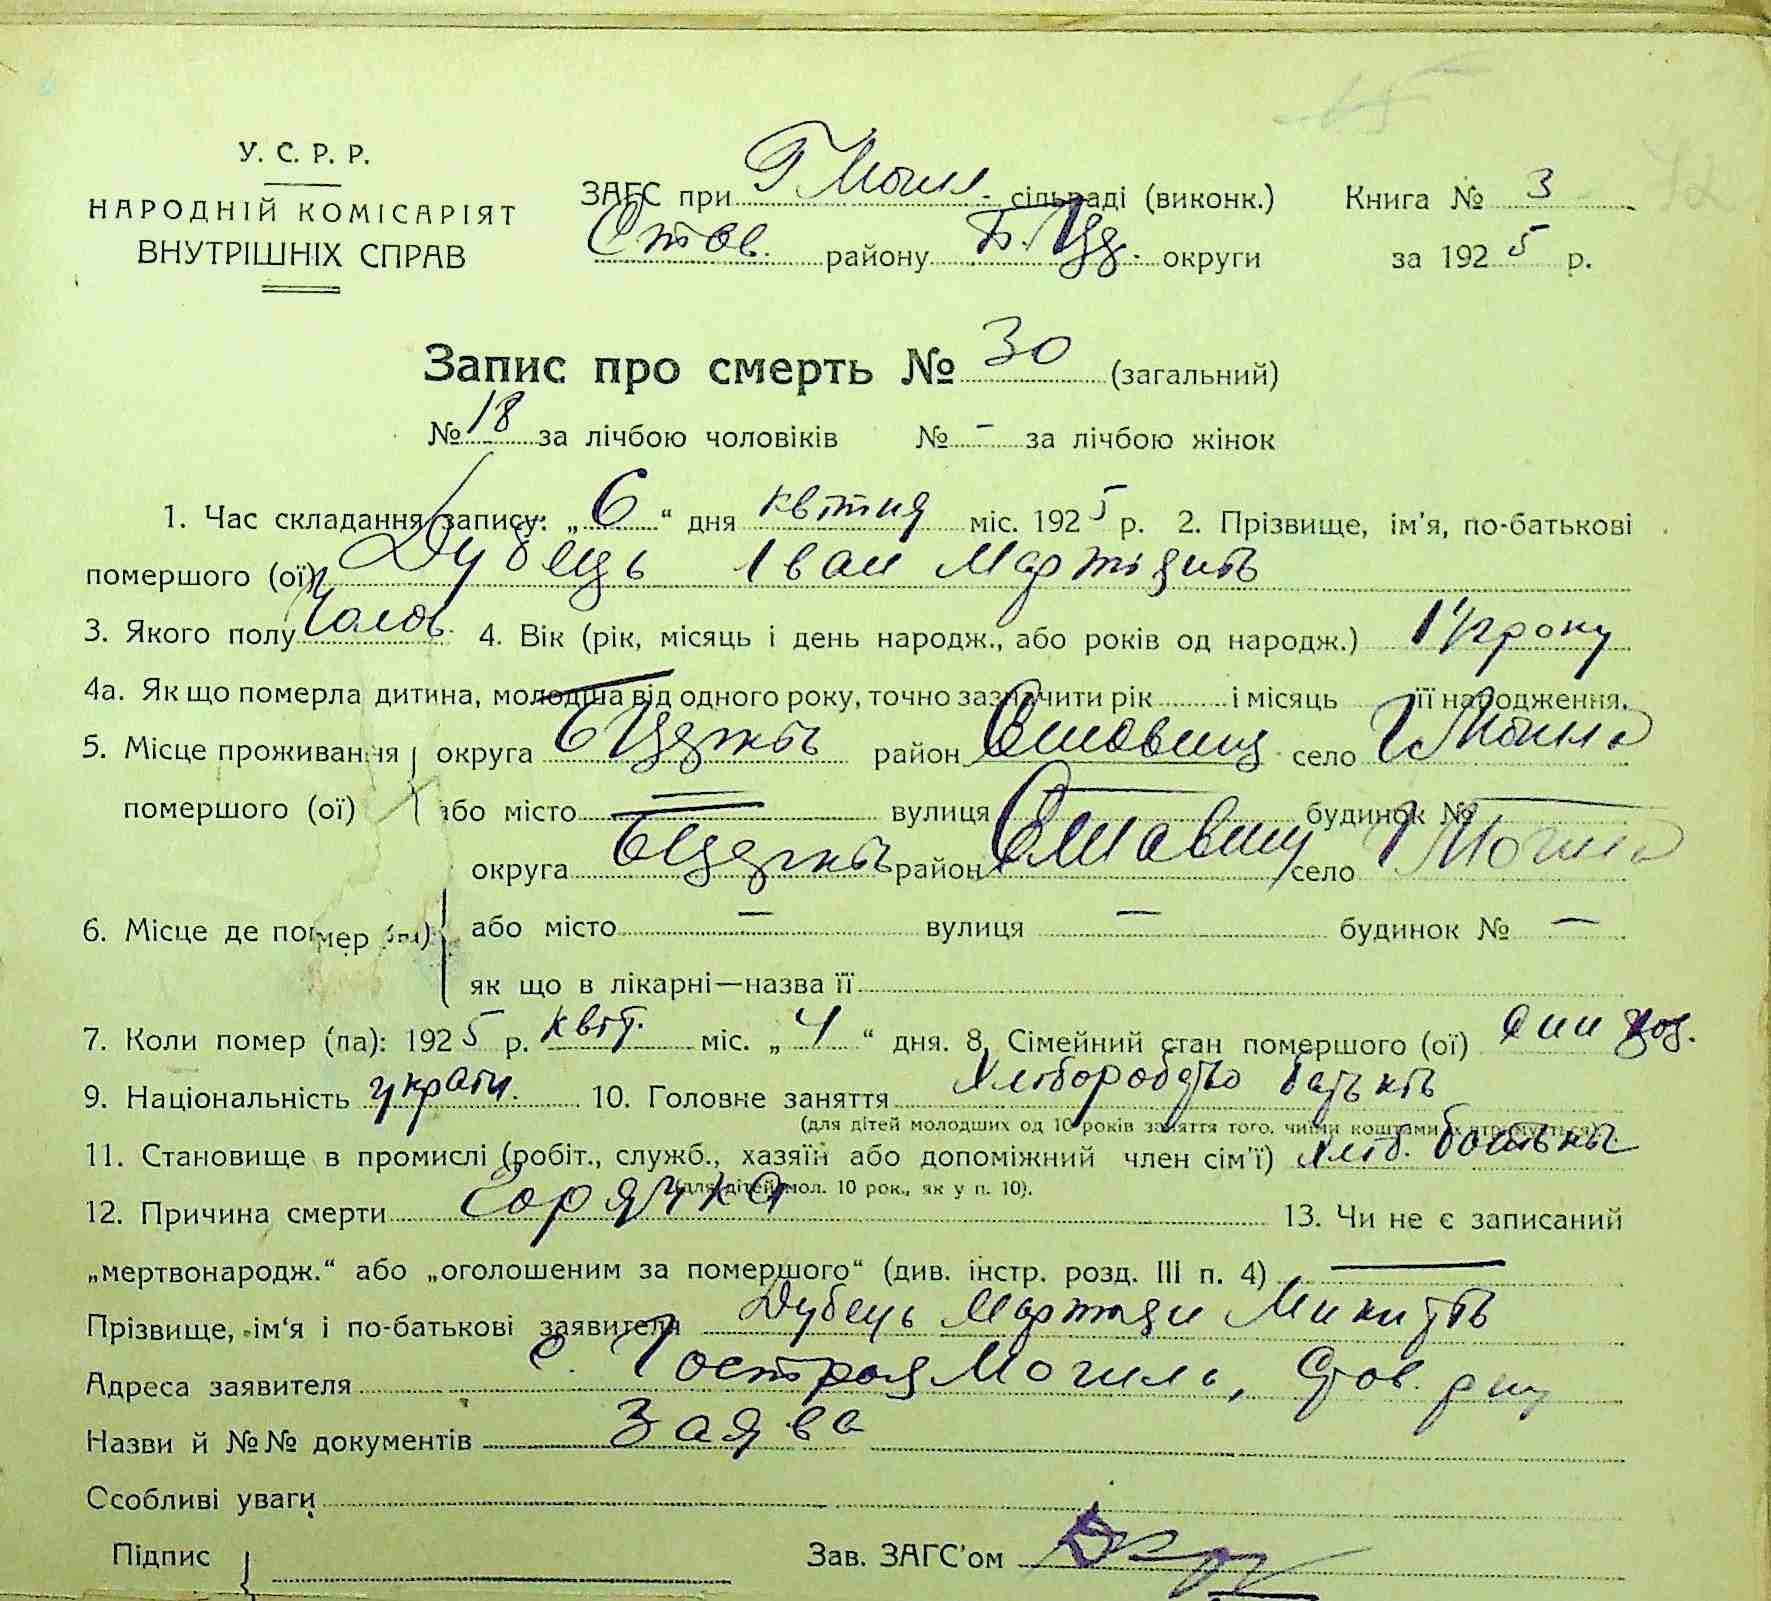 У. С. Р. Р.
НАРОДНІЙ КОМІСАРІЯТ
ВНУТРІШНІХ СПРАВ
ЗАГС при Г Могил. сільраді (виконк.) Книга № 3
Став. району Б. Цер. округи за 1925 р.
Запис про смерть № 30 (загальний)
№ 18 за лічбою чоловіків № - за лічбою жінок
1. Час складання запису: „ 6 “ дня квітня міс. 1925 р. 2. Прізвище, ім'я, по-батькові
помершого (ої) Дубець Іван Мартин
3. Якого полу Чолов. 4. Вік (рік, місяць і день народж., або років од народж.) 1 1/2 року
4а. Як що померла дитина, молодша від одного року, точно зазначити рік і місяць її народження.
5. Місце проживання округа Б Церків район Ставищ село Г Могила
помершого (ої) або місто — вулиця — будинок № —
округа Б Церків район Ставищ село Г Могила
6. Місце де помер (ла) або місто — вулиця — будинок № —
як що в лікарні—назва її
7. Коли помер (ла): 1925 р. квіт. міс. „ 4 “ дня. 8. Сімейний стан помершого (ої) син
9. Національність україн. 10. Головне заняття Хліборобство батьків
(для дітей молодших од 10 років заняття того, чиїми коштами їх утримується).
11. Становище в промислі (робіт., служб., хазяїн або допоміжний член сім'ї) Хліб.
(для дітей мол. 10 рок., як у п. 10).
12. Причина смерти Горячка 13. Чи не є записаний
„мертвонародж.“ або „оголошеним за помершого“ (див. інстр. розд. III п. 4) —
Прізвище, ім'я і по-батькові заявителя Дубець Мартин Микит
Адреса заявителя с. Гострая Могила, Став. р-ну
Назви й №№ документів Заява
Особливі уваги
Підпис Зав. ЗАГС'ом